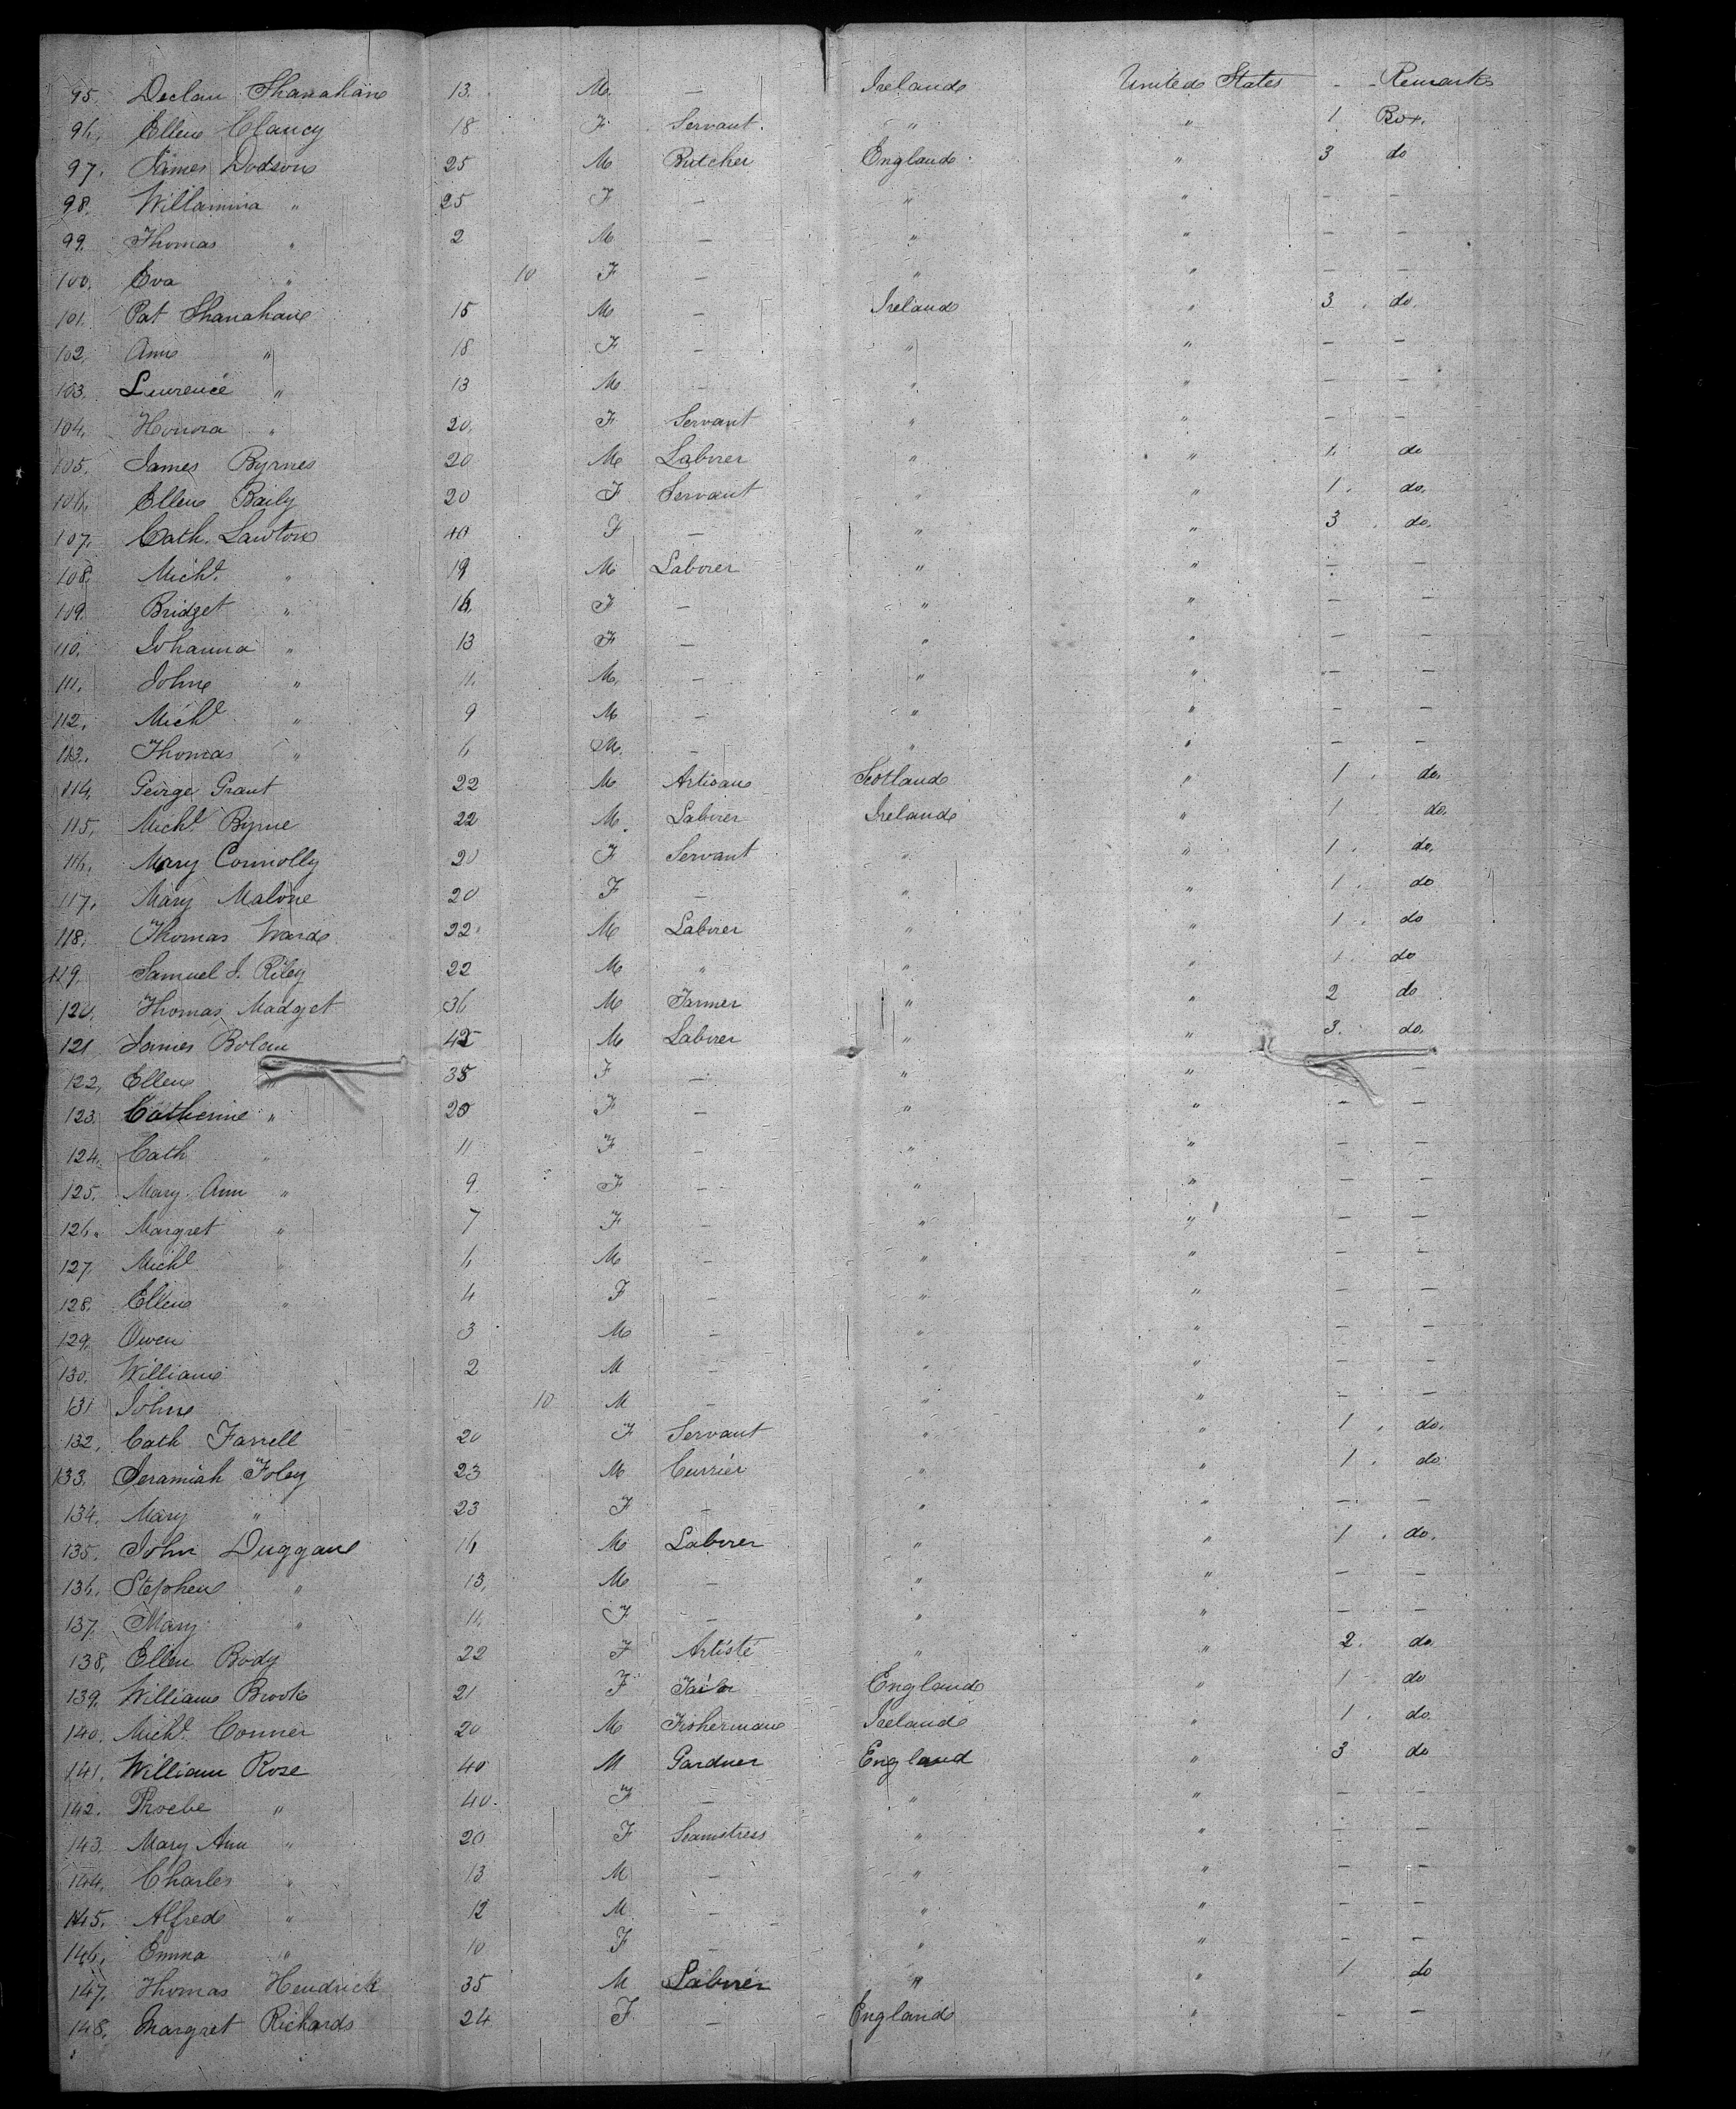 95. Declan Shanahan 13. M. — Ireland United States - - Remarks
96. Ellen Clancy 18 F Servant. " " 1 Box.
97. James Dodson 25 M Butcher England " 3 do
98. Willamina " 25 F — " " — —
99. Thomas " 2 M — " " — —
100. Eva " 10 F — " " — —
101. Pat Shanahan 15 M — Ireland " 3 do.
102. Ann " 18 F — " " — —
103. Lawrence " 13 M — " " — —
104. Honora " 20. F Servant " " — —
105. James Byrnes 20 M Laborer " " 1. do
106. Ellen Baily 20 F Servant " " 1. do.
107. Cath. Lawton 40 F — " " 3. do.
108. Michl. " 19 M Laborer " " — —
109. Bridget " 16. F — " " — —
110. Johanna " 13 F — " " — —
111. John " 11. M. — " " — —
112. Michl " 9 M — " " — —
113. Thomas " 6 M. — " " — —
114. George Grant 22 M Artisan Scotland " 1. do.
115. Michl. Byrne 22 M. Laborer Ireland " 1 do.
116. Mary Connolly 20 F Servant " " 1. do.
117. Mary Malone 20 F — " " 1. do
118. Thomas Ward 22 M Laborer " " 1. do
119. Samuel J. Riley 22 M " " " 1 do
120. Thomas Madget 36 M Farmer " " 2 do
121 James Bolan 45 M Laborer " " 3. do.
122, Ellen " 35 F — " " —
123. Catherine " 20 F — " " — —
124. Cath " 11 F — " " — —
125. Mary Ann " 9 F — " " — —
126. Margret " 7 F — " " — —
127. Michl " 6 M — " " — —
128. Ellen " 4 F — " " — —
129. Owen 3 M — " " — —
130. William 2 M — " " — —
131 John 10 M — " " — —
132. Cath Farrell 20 F Servant " " 1. do.
133. Jeramiah Foley 23 M Currier " " 1. do.
134. Mary " 23 F — " " — —
135. John Duggan 16 M Laborer " " 1. do.
136. Stephen " 13, M — " " — —
137. Mary " 11. F — " " — —
138. Ellen Body 22 F Artiste " " 2. do.
139. William Brook 21 F Tailor England " 1 do
140. Michl. Conner 20 M Fisherman Ireland " 1. do.
141. William Rose 40 M Gardner England " 3 do
142. Phoebe " 40. F — " " — —
143. Mary Ann " 20 F Seamstress " " — —
144. Charles " 13 M — " " — —
145. Alfred " 12 M — " " — —
146. Emma " 10 F — " " — —
147. Thomas Hendrick 35 M Laborer " " 1 do
148. Margret Richards 24 F — England " — —